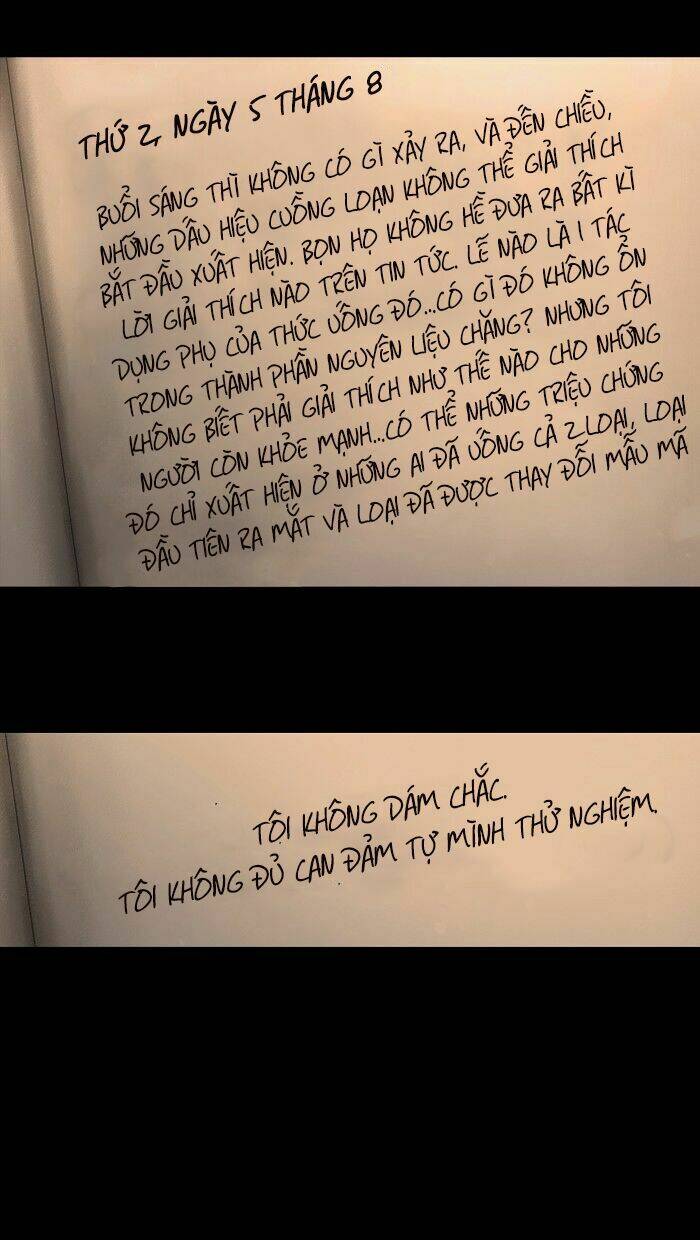 THỨ 2, NGÀY 5 THÁNG 8
BUỔI SÁNG THÌ KHÔNG CÓ GÌ XẢY RA, VÀ ĐẾN CHIỀU,
NHỮNG DẤU HIỆU CUỒNG LOẠN KHÔNG THỂ GIẢI THÍCH
BẮT ĐẦU XUẤT HIỆN. BỌN HỌ KHÔNG HỀ ĐƯA RA BẤT KÌ
LỜI GIẢI THÍCH NÀO TRÊN TIN TỨC. LẼ NÀO LÀ 1 TÁC
DỤNG PHỤ CỦA THỨC UỐNG ĐÓ...CÓ GÌ ĐÓ KHÔNG ỔN
TRONG THÀNH PHẦN NGUYÊN LIỆU CHĂNG? NHƯNG TÔI
KHÔNG BIẾT PHẢI GIẢI THÍCH NHƯ THẾ NÀO CHO NHỮNG
NGƯỜI CÒN KHỎE MẠNH...CÓ THỂ NHỮNG TRIỆU CHỨNG
ĐÓ CHỈ XUẤT HIỆN Ở NHỮNG AI ĐÃ UỐNG CẢ 2 LOẠI, LOẠI
ĐẦU TIÊN RA MẮT VÀ LOẠI ĐÃ ĐƯỢC THAY ĐỔI MẪU MÃ
TÔI KHÔNG DÁM CHẮC.
TÔI KHÔNG ĐỦ CAN ĐẢM TỰ MÌNH THỬ NGHIỆM.